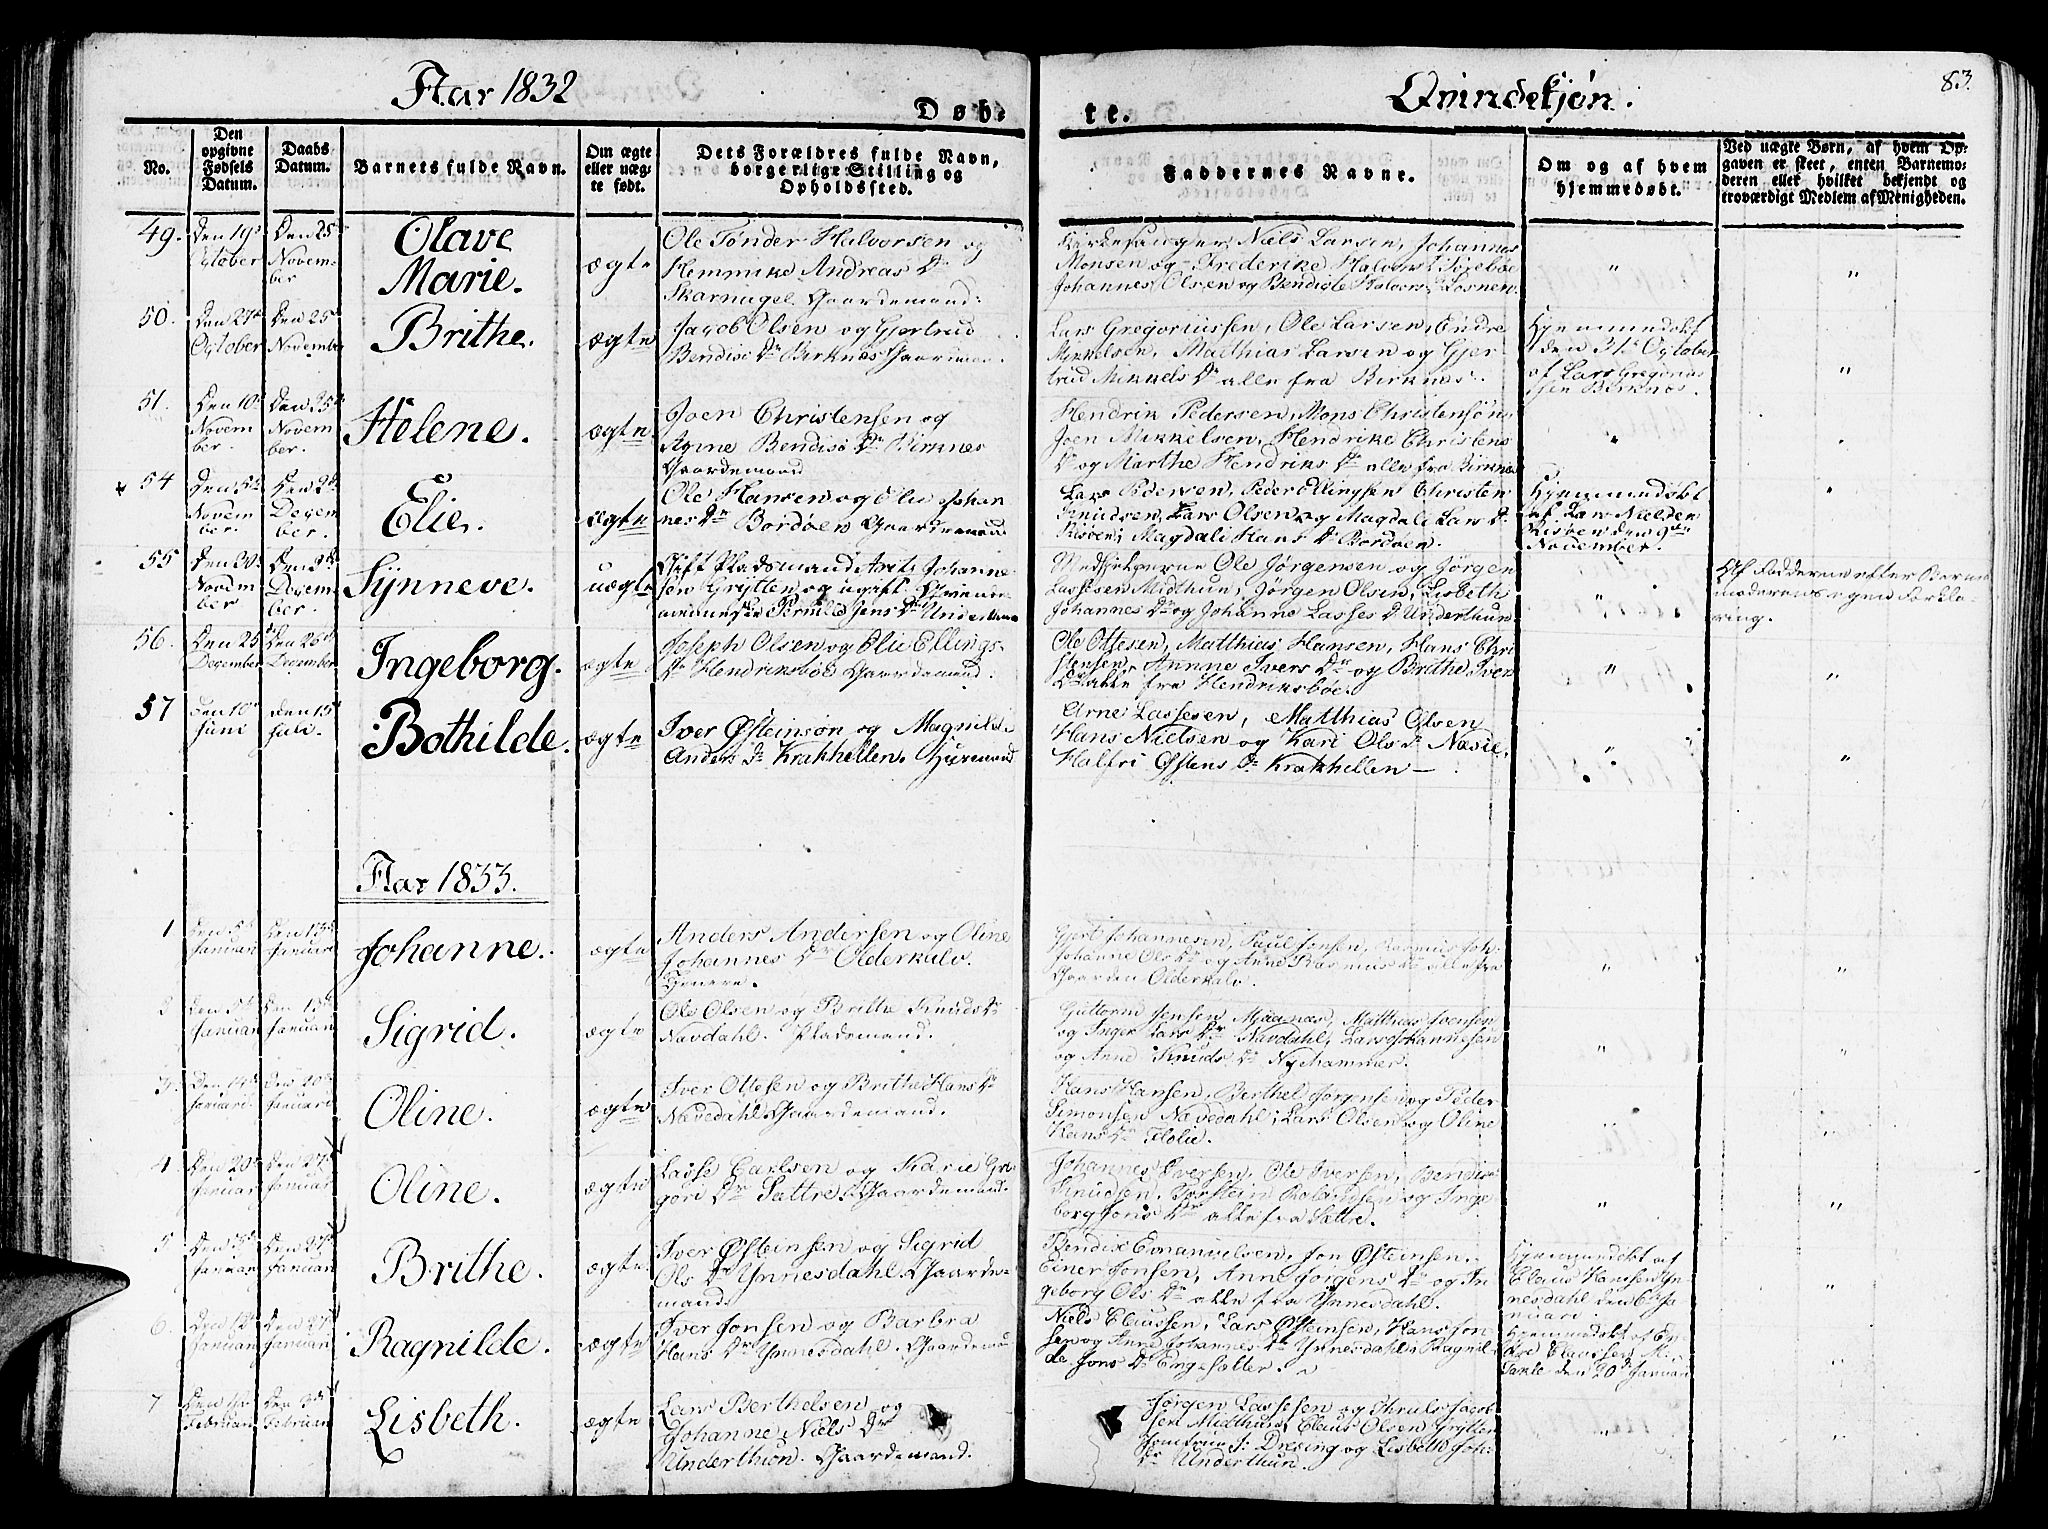 Aar 1832
Døb-
te.
Qvindekjøn.
83.
No.
Den opgivne Fødsels Datum.
Daabs Datum.
Barnets fulde Navn.
Om ægte eller uægte født.
Dets Forældres fulde Navn, borgerlige Stilling og Opholdssted.
Faddernes Navne.
Om og af hvem hjemmedøbt.
Ved uægte Børn, af hvem Opgaven er skeet, enten Barnemoderen eller hvilket bekjendt og troværdigt Medlem af Menigheden.
49. Den 19de October
Den 25de November
Olave Marie.
ægte
Ole Tønder Halvorsen og
Hemmike Andreas Dr
Gaardemand.
Kirkesanger Niels Larsen, Johannes
Monsen og Frederike Halvors Dr
Johannes Olsen og Bendicte Halvors Dr Losnen.
50. Den 27de October
Den 25de November
Brithe.
ægte
Jacob Olsen og Gjertrud
Bendix Dr Birknæs
Lars Gregoriussen, Ole Larsen, Endre
Mikkelsen, Matthias Larsen og Gjer
trud Mikkels Dr alle fra Birknæs.
Hjemmedøbt
den 31te October
af Lars Gregorius
sen Birknæs.
51. Den 10de November
Den 25de November
Helene.
ægte.
Joen Christensen og
Bendix Dr Birknæs
Gaardemand
Hendrik Pedersen, Mons Christensøn,
Joen Mikkelsen, Hendrike Christens
Dr og Marthe Hendriks Dr alle fra Birknæs
54 Den 5te November
Den 2den December.
Elie.
ægte
Ole Hansen og Elie Johan
nes Dr Bordøen Gaardemand
Lars Pedersen, Peder Ellingsen Christen
Knudsen, Lars Olsen og Magdali Lars Dr
Risøen, Magdali Hans Dr Bordøen.
Hjemmedøbt
af Lars
Risøen den 9de
November.
55 Den 30te November
December.
Synneve.
uægte
Gift Pladsmand Johanne
sen Grytten og ugift
Jens Dr Underthun
Medhjelperne Ole Jørgensen og Jørgen
Lassesen Midthun, Jørgen Olsen, Lisbeth
Johannes Dr og Johanne Lasses Dr Underthun.
Af Fadderne efter Barne
moderens egen Forkla
ring.
56. Den 25de December
Den 26de December
Ingeborg.
ægte
Joseph Olsen og Elie Ellings
Dr Hendriksbøe Gaardemand.
Ole Ottesen, Matthias Hansen, Hans Chri
stensen, Anne Ivers Dr og Brithe Ivers
Dr alle fra Hendriksbøe.
57 Den 10de Juni
Den 15de Juli.
Bothilde.
ægte
Iver Østeinsøn og
Anders Dr Krakhellen. Huusmand
Arne Lassesen, Matthias Olsen
Hans Nielsen og Kari Ols Dr Næsie,
Halfri Østens Dr Krakhellen
Aar 1833.
1 Den 5te Januari
Den 13de Januari
Johanne.
ægte
Anders Andersen og Oline
Johannes Dr Olderkalv.
Gjert Johannesen, Paul Jonsen, Rasmus Joh.
Johanne Ols Dr og Anne Rasmus Dr alle fra
Gaarden Olderkalv.
2 Den 5te Januari
Den 13de Januari
Sigrid.
ægte
Ole Olsen og Brithe Knuds Dr
Navdahl. Pladsmand.
Guttorm Jensen Maanæs, Matthias Svensen
og Inger Lars Dr Navdahl, Lars Johannesen
og Anne Knuds Dr Nyehammer.
3. Den 14de Januari
Den 20de Januari
Oline.
ægte
Iver Ottesen og Brithe Hans Dr
Navedahl Gaardemand.
Hans Hansen, Berthel Jørgensen og Peder
Simonsen Navedahl, Lars Olsen og Oline
Hans Dr Flolie.
4. Den 20de Januar
Den 27de Januar
Oline.
ægte
Lasse Carlsen og Karie Gre
gori Dr Sattre. Gaardemand.
Johannes Iversen, Ole Iversen, Bendix
Knudsen, Torstein Rolandsen og Inge
borg Jons Dr alle fra Sattre.
5. Januar
Den 27de Januar
Brithe.
ægte.
Iver Østeinsen og Sigrid
Ols Dr Ynnesdahl. Gaarde-
mand.
Bendix Emanuelsen, Jon Østeinsen,
Einer Jonsen, Anne Jørgens Dr og In
geborg Ols Dr alle fra Ynnesdahl.
Hjemmedøbt af
Claus Hansen Yn
nesdahl den 6te Ja
nuari
6. Den 12te Januar
Den 27de Januar
Ragnilde.
ægte
Iver Jonsen og Barbra
Hans Dr Ynnesdahl. Gaardemand
Niels Claussen, Lars Østeinsen, Hans Jon
sen og Anne Johannes Dr Ynnesdahl, Ragnil
de Jons Dr Engesætter.
Hjemmedøbt af
Claussen
den 20de Januar
7 Februar
Februar
Lisbeth.
ægte
Lars Berthelsen og
Johanne Niels Dr
Underthun. Gaardemand.
Jørgen Lassesen og Jacob
sen Midthun, Claus Olsen Grytten
og Lisbeth Joh:
Dr Underthun.